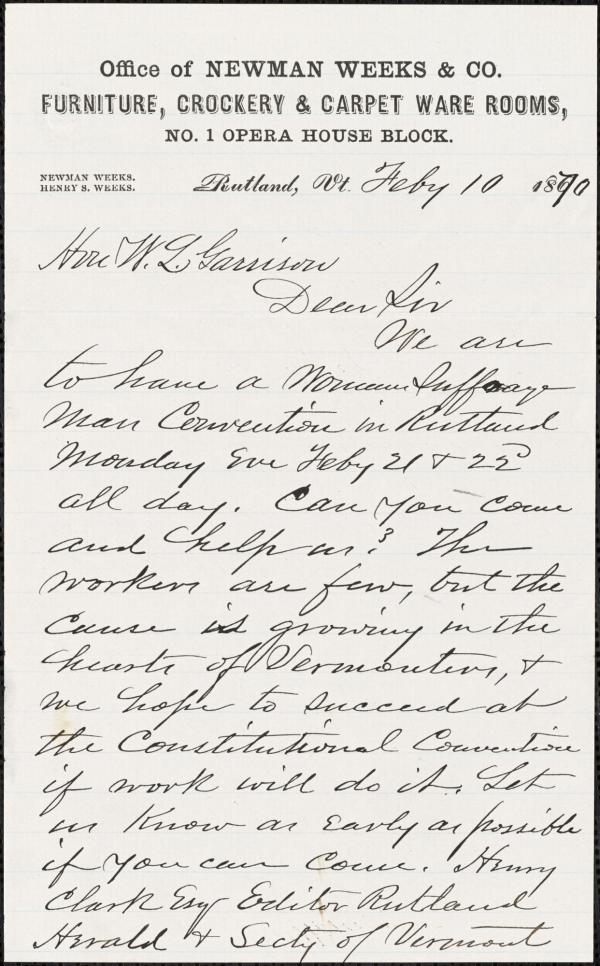 Office of NEWMAN WEEKS & CO.
FURNITURE, CROCKERY & CARPET WARE ROOMS,
NO. 1 OPERA HOUSE BLOCK.
NEWMAN WEEKS.
HENRY S. WEEKS.
Rutland, Vt. Feby 10 1870
Hon W. L. Garrison
Dear Sir
We are
to have a Woman Suffrage
Mass Convention in Rutland
Monday Eve Feby 21 & 22d
all day. Can you come
and help us? The
workers are few, but the
cause is growing in the
hearts of Vermonters, &
we hope to succeed at
the Constitutional Convention
if work will do it. Let
us know as early as possible
if you can come. Henry
Clark Esq Editor Rutland
Herald & Secty of Vermont